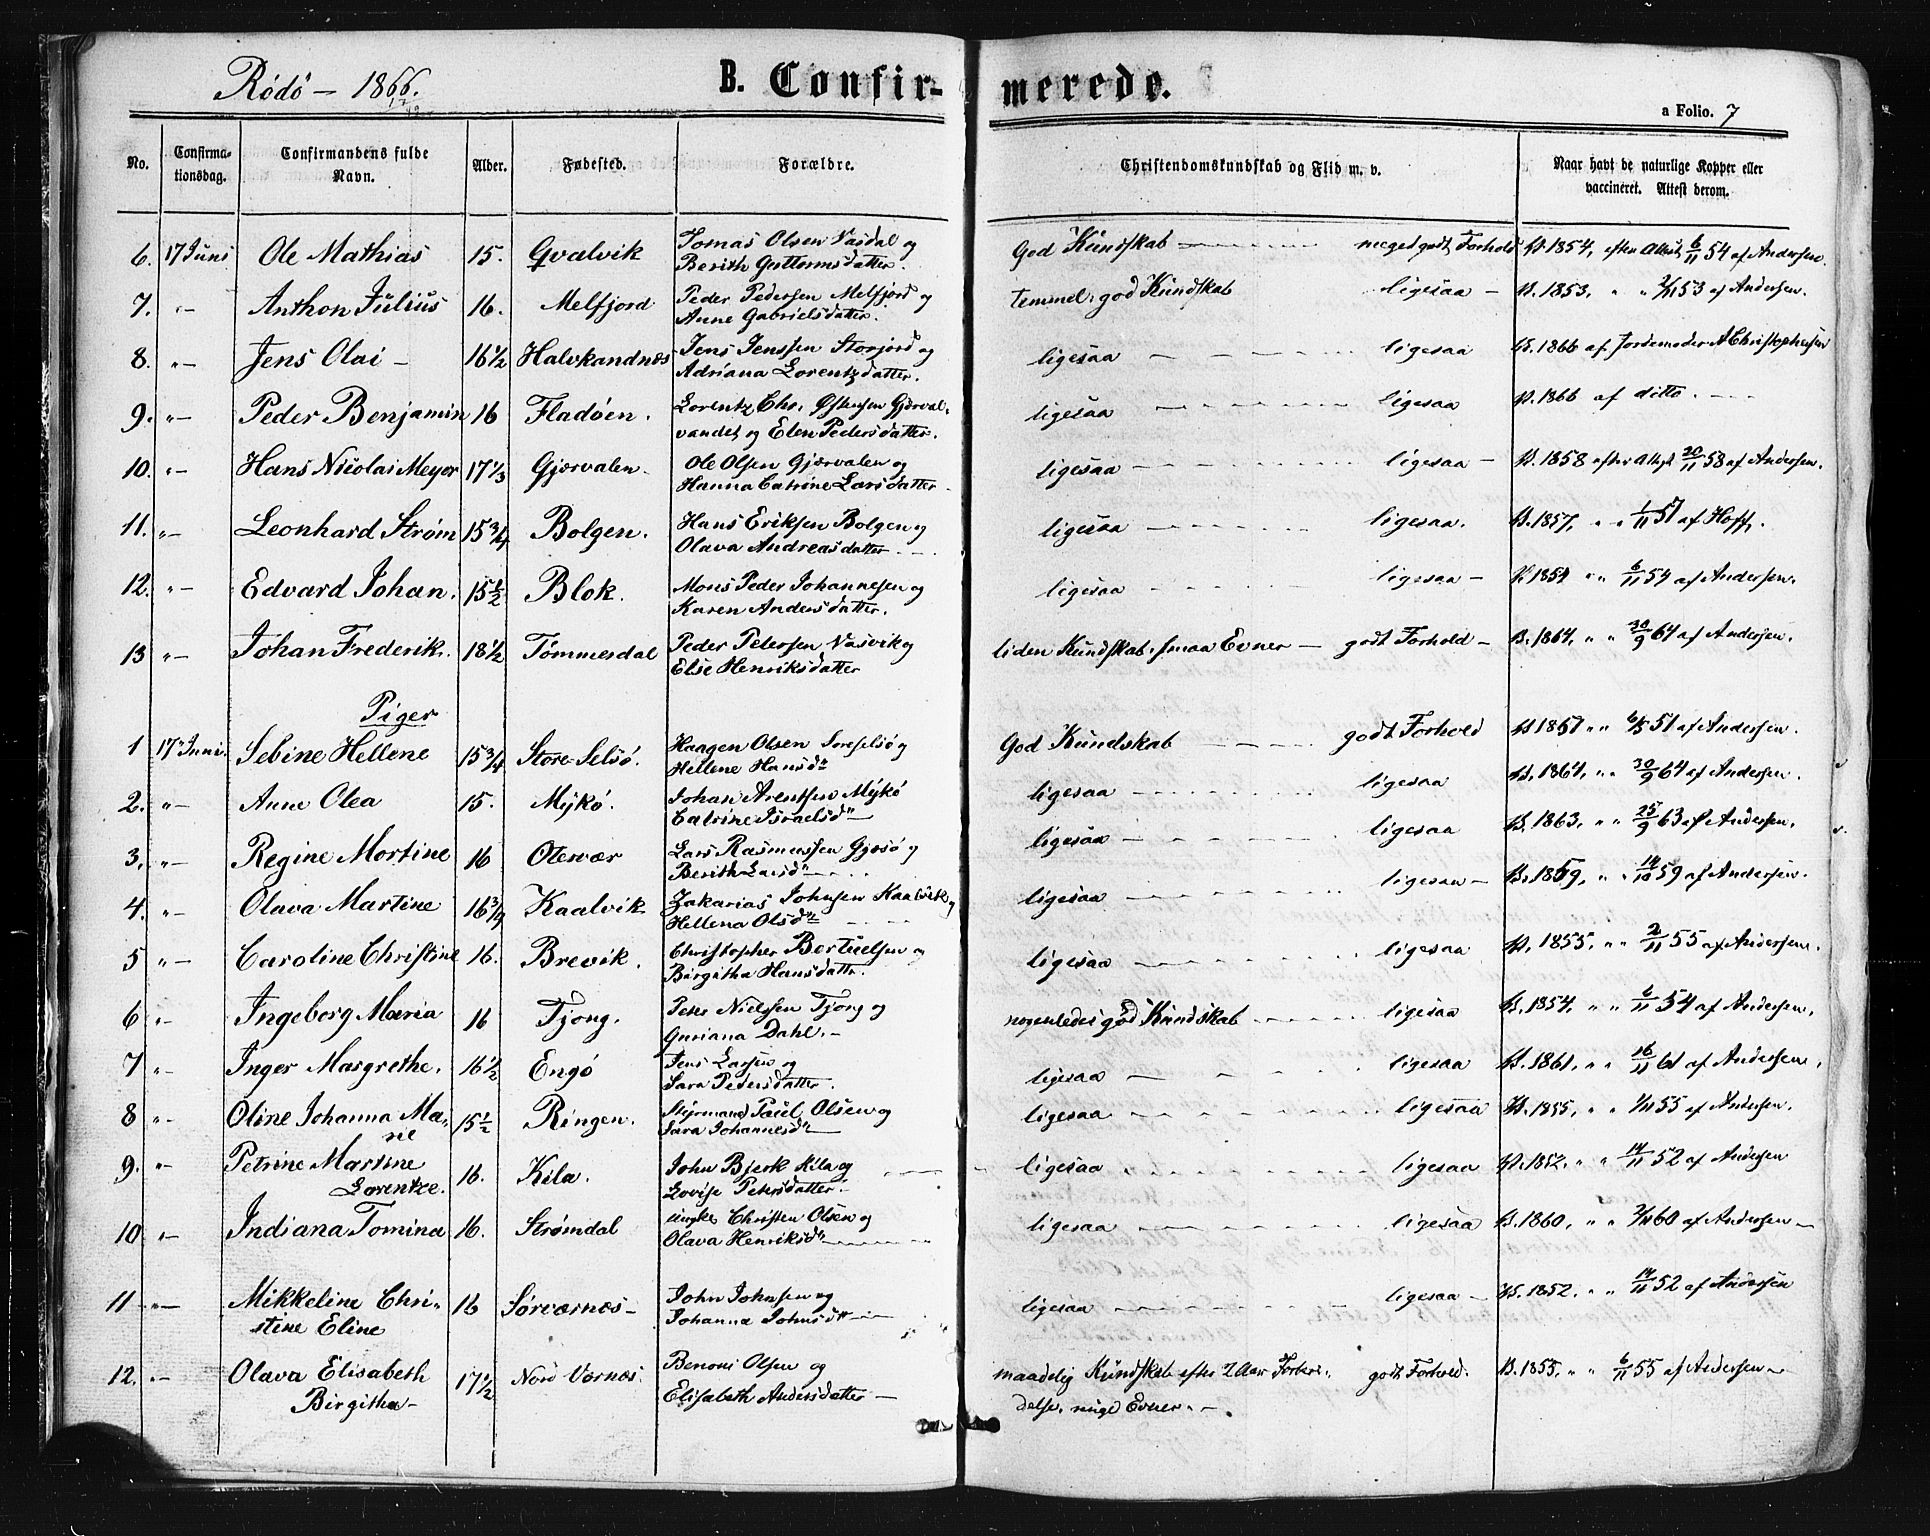 Rødø – 1866.
B. Confir-merede.
a Folio. 7
No. Confirma-tionsdag. Confirmandens fulde Navn. Alder. Fødested. Forældre. Christendomskundskab og Flid m. v. Naar havt de naturlige Kopper eller vaccineret. Attest derom.
6. 17 Juni Ole Mathias 15. Qvalvik Tomas Olsen Vasdal og Berith Guttormsdatter. God Kundskab meget godt Forhold V. 1854, efter Attest 6/11 54 af Andersen.
7. "– Anthon Julius 16. Melfjord Peder Pedersen Melfjord og Anne Gabrielsdatter. temmel. god Kundskab ligesaa – V. 1853. " " 2/11 53 af Andersen.
8. "– Jens Olai – 16 1/2 Halvkandnæs Jens Jenssen Storjord og Adriana Lorentzdatter. ligesaa ligesaa V. 1866 af Jordemoder A Christophersen
9. "– Peder Benjamin 16 Fladøen. Lorentz Chr. Østensen Gjerval-vandet og Elen Pedersdatter. ligesaa ligesaa V. 1866 af ditto.
10. "– Hans Nicolai Meyer 17 1/3 Gjærvalen. Ole Olsen Gjærvalen og Hanna Catrine Larsdatter ligesaa ligesaa – V. 1858 efter Attest 20/11 58 af Andersen.
11. "– Leonhard Strøm 15 3/4 Bolgen. Hans Eriksen Bolgen og Olava Andreasdatter ligesaa ligesaa. V. 1857, " " 1/11 57 af Hoff.
12. "– Edvard Johan. 15 1/2 Blok. Mons Peder Johannesen og Karen Andersdatter. ligesaa ligesaa – V. 1854 " " 6/11 54 af Andersen.
13 "– Johan Frederik. 18 1/2 Tømmerdal Peder Petersen Vasvik og Else Henriksdatter liden Kundskab, smaa Evner – godt Forhold – V. 1864, " " 30/9 64 af Andersen.
Piger
1 17 Juni. Sebine Hellene 15 3/4 Store-Selsø. Haagen Olsen Soreselsø og Hellene Hansdr God Kundskab godt Forhold V. 1851 " " 6/5 51 af Andersen.
2. "– Anne Olea 15. Mykø. Johan Arentsen Mykø Catrine Israelsdr ligesaa ligesaa V. 1864, " " 30/9 64 af Andersen.
3. "– Regine Mortine 16 Oterær Lars Rasmussen Gjesø og Berith Larsdr ligesaa ligesaa V. 1863, " " 25/9 63 af Andersen.
4. "– Olava Martine 16 3/4 Kaalvik Zakarias Johnsen Kaalvik og Hellena Olsdr ligesaa ligesaa – V. 1859, " " 14/10 59 af Andersen.
5 "– Caroline Christine 16. Brevik. Christopher Bertuelsen og Birgitha Hansdattr. ligesaa ligesaa V. 1855, " " 2/11 55 af Andersen.
6 "– Ingeborg Maria 16 Tjong. Peter Nielsen Tjong og Guriana Dahl. – nogenledes god Kundskab ligesaa V. 1854. " " 6/11 54 af Andersen.
7 "– Inger Margrethe. 16 1/2 Engø Jens Larsen og Sara Pedersdatter. ligesaa ligesaa V. 1861, " " 16/11 61 af Andersen.
8 "– Oline Johanna Ma-rie 15 1/2 Ringen. Styrmand Paul Olsen og Sara Johannesdr ligesaa ligesaa V. 1855, " " 1/11 55 af Andersen.
9. "– Petrine Martine Lorentze. 16. Kila. John Bjerk Kila og Lovise Petersdatter. ligesaa ligesaa V. 1852. " " 14/11 52 af Andersen
10 "– Indiana Tomina 16. Strømdal ungke Christen Olsen og Olava Henriksdr ligesaa ligesaa V. 1860, " " 2/11 60 af Andersen –
11 "– Mikkeline Chri-stine Eline 16 Sørværnæs – John Johnsen og Johanna Johnsdr ligesaa ligesaa – V. 1852. " " 14/11 52 af Andersen
12. "– Olava Elisabeth Birgitha – 17 1/2 Nord Værnæs. Benoni Olsen og Elisabeth Andersdatter – maadelig Kundskab efter 2 Aar Forbere-delse, ringe Evner. – godt Forhold. V. 1855, " " 6/11 55 af Andersen –